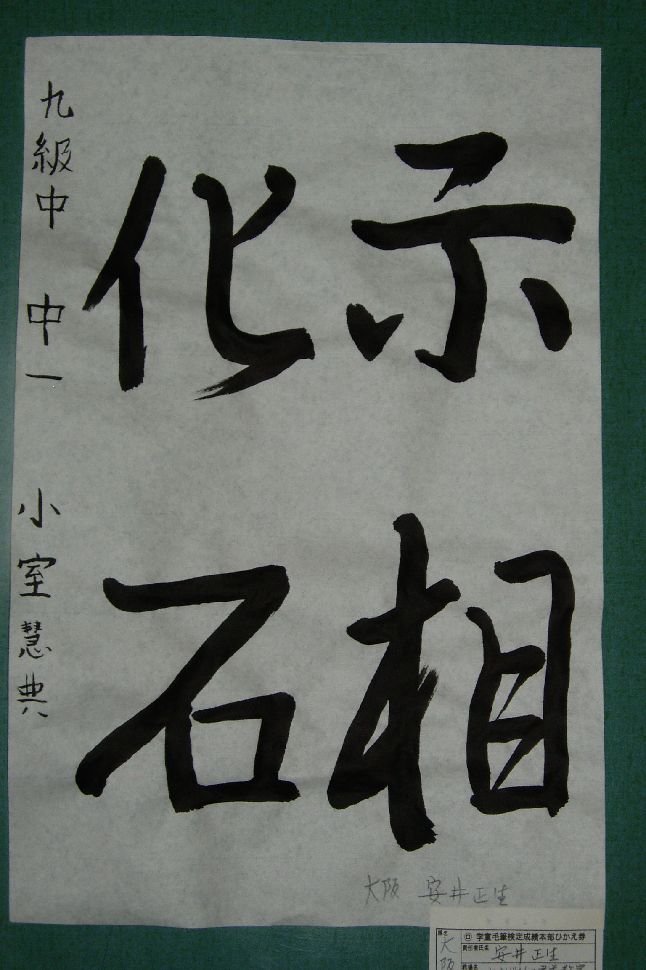 示相
化石
九級中 中一 小室慧典
大阪 安井正生
学童毛筆検定成績本部ひかえ券
大阪
責任者氏名 安井正生